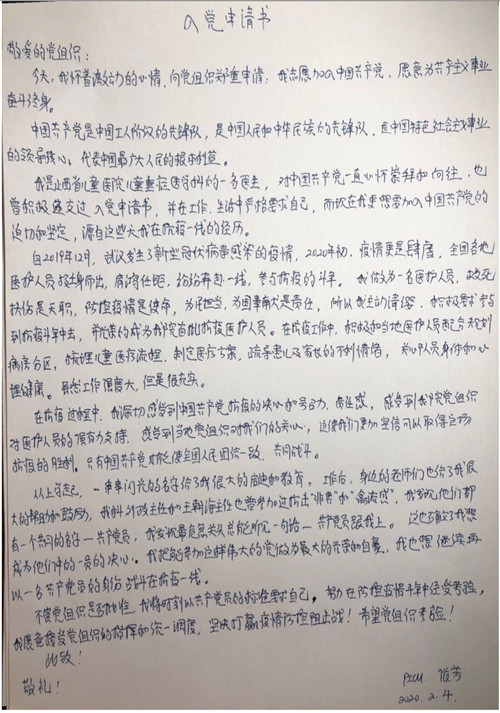 入党申请书
敬爱的党组织：
今天，我怀着激动的心情，向党组织郑重申请：我志愿加入中国共产党，愿意为共产主义事业
奋斗终身。
中国共产党是中国工人阶级的先锋队，是中国人民和中华民族的先锋队，是中国特色社会主义事业
的领导核心，代表中国最广大人民的根本利益。
我是山西省儿童医院儿童重症医学科的一名医生，对中国共产党一直心怀崇拜和向往，也
曾积极递交过入党申请书，并在工作、生活中严格要求自己，而现在我更想要加入中国共产党的
迫切和坚定，源自这些天我在抗疫一线的经历。
自2019年12月，武汉发生了新型冠状病毒感染的疫情，2020年初，疫情更是肆虐，全国各地
医护人员挺身而出，肩负任务，纷纷奔赴一线，参与抗疫的斗争。我作为一名医护人员，救死
扶伤是天职，防控疫情是使命，为民担当、为国奉献是责任，所以我主动请缨，积极要求参与
到抗疫斗争中去，并光荣的成为我院首批抗疫医护人员。在抗疫工作中，积极和当地医护人员配合规划
病房分区，梳理儿童医疗流程，制定医疗方案，疏导患儿及家长的不利情绪，关心队人员身体和心
理健康。虽然工作强度大，但是很充实。
在抗疫过程中，我深切感受到中国共产党抗疫的决心和号召力、责任感，感受到我院党组织
对医护人员的很有力支持，感受到当地党组织对我们的关心，这使我们更加坚信可以取得这场
抗疫的胜利。只有中国共产党才能使全国人民团结一致、共同战斗。
从上学起，一串串闪光的名字给了我很大的启迪和教育。工作后，身边的老师们也给了我很
大的帮助和鼓励，我科主任和王主任也曾参加过抗击“非典”和“禽流感”，我发现他们都
有一个共同的名字—共产党员，我发现最危急关头总能听见一句话—共产党员跟我上。这也确定了我想
成为他们中的一员的决心。我把能参加这样伟大的党做为最大的光荣和自豪，我也想继续再
以一名共产党员的身份战斗在抗疫一线。
不管党组织是否批准，我将时刻以共产党员的标准要求自己，努力在防控疫情斗争中经受考验，
我愿意接受党组织的指挥和统一调度，坚决打赢疫情防控阻击战！希望党组织考验！
此致！
敬礼！
PICU 张芳
2020.2.4.